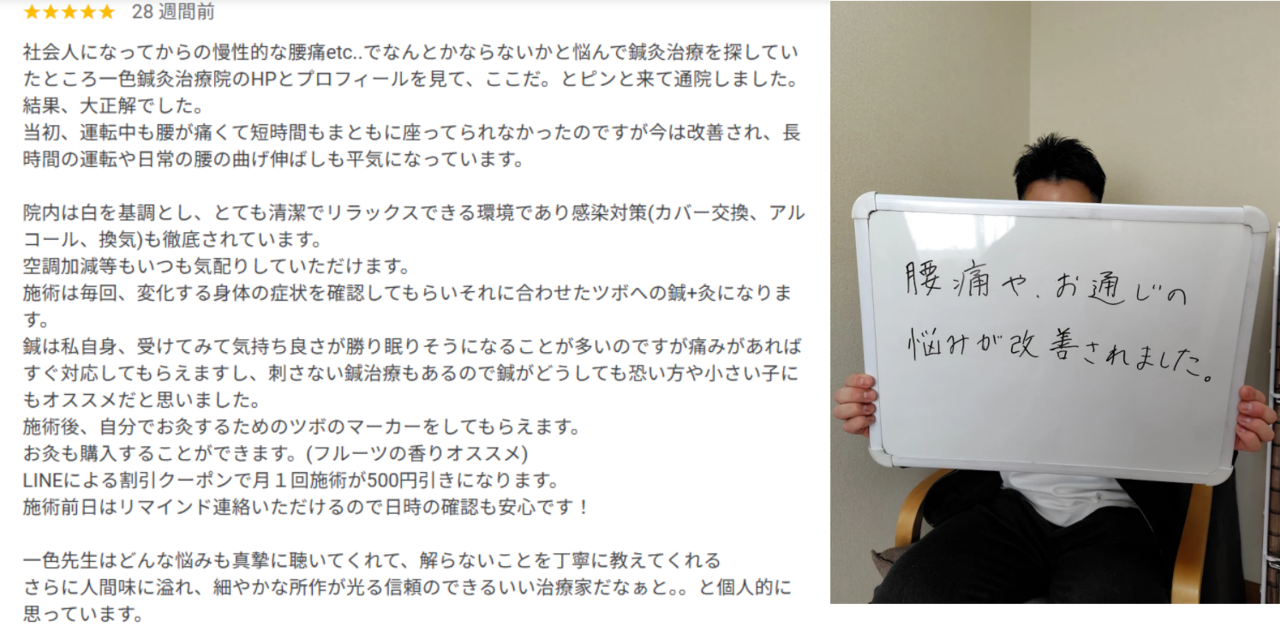 ★★★★★ 28 週間前
社会人になってからの慢性的な腰痛etc..でなんとかならないかと悩んで鍼灸治療を探してい
たところ一色鍼灸治療院のHPとプロフィールを見て、ここだ。とピンと来て通院しました。
結果、大正解でした。
当初、運転中も腰が痛くて短時間もまともに座ってられなかったのですが今は改善され、長
時間の運転や日常の腰の曲げ伸ばしも平気になっています。
院内は白を基調とし、とても清潔でリラックスできる環境であり感染対策(カバー交換、アル
コール、換気)も徹底されています。
空調加減等もいつも気配りしていただけます。
施術は毎回、変化する身体の症状を確認してもらいそれに合わせたツボへの鍼+灸になりま
す。
鍼は私自身、受けてみて気持ち良さが勝り眠りそうになることが多いのですが痛みがあれば
すぐ対応してもらえますし、刺さない鍼治療もあるので鍼がどうしても恐い方や小さい子に
もオススメだと思いました。
施術後、自分でお灸するためのツボのマーカーをしてもらえます。
お灸も購入することができます。(フルーツの香りオススメ)
LINEによる割引クーポンで月１回施術が500円引きになります。
施術前日はリマインド連絡いただけるので日時の確認も安心です！
一色先生はどんな悩みも真摯に聴いてくれて、解らないことを丁寧に教えてくれる
さらに人間味に溢れ、細やかな所作が光る信頼のできるいい治療家だなぁと。。と個人的に
思っています。
腰痛や、お通じの
悩みが改善されました。